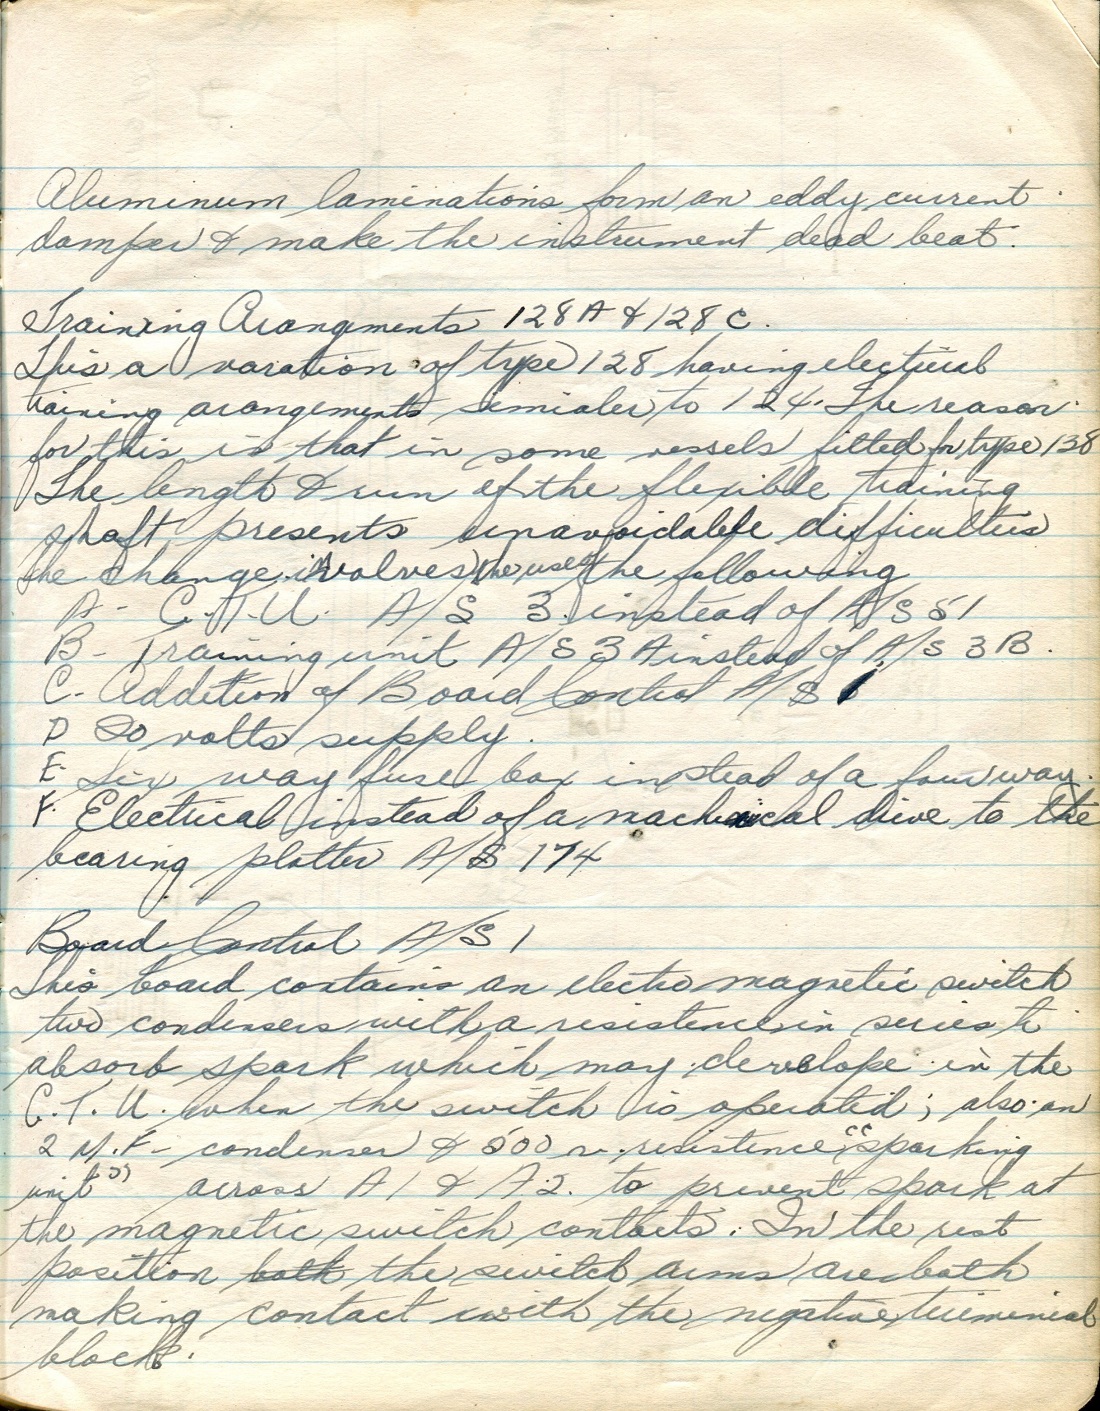 Aluminum laminations form an eddy current
damper & make the instrument dead beat.
Training Arangments 128 A & 128 C.
This a varation of type 128 having electical
training arangements similer to 124. The reason
for this is that in some vessels fitted for type 138
The length & run of the flexible training
shaft presents unavoidable difficultus
the change involves the use of the following
A- C.T.U. A/S 3. instead of A/S 51
B- Training unit A/S 3 A instead of A/S 3 B.
C- Addition of Board Control A/S 1
D 20 volts supply.
E- Six way fuse box instead of a four way.
F- Electrical instead of a machnical drive to the
bearing plotter A/S 174
Board Control A/S 1
This board contains an electro magnetic switch
two condensers with a resistence in series to
absorb spark which may develope in the
C.T.U. when the switch is operated; also an
2 M.F- condenser & 500 resistence "sparking
unit" across A1 & A2. to prevent spark at
the magnetic switch contacts. In the rest
position both the switch arms are both
making contact with the negative
block.